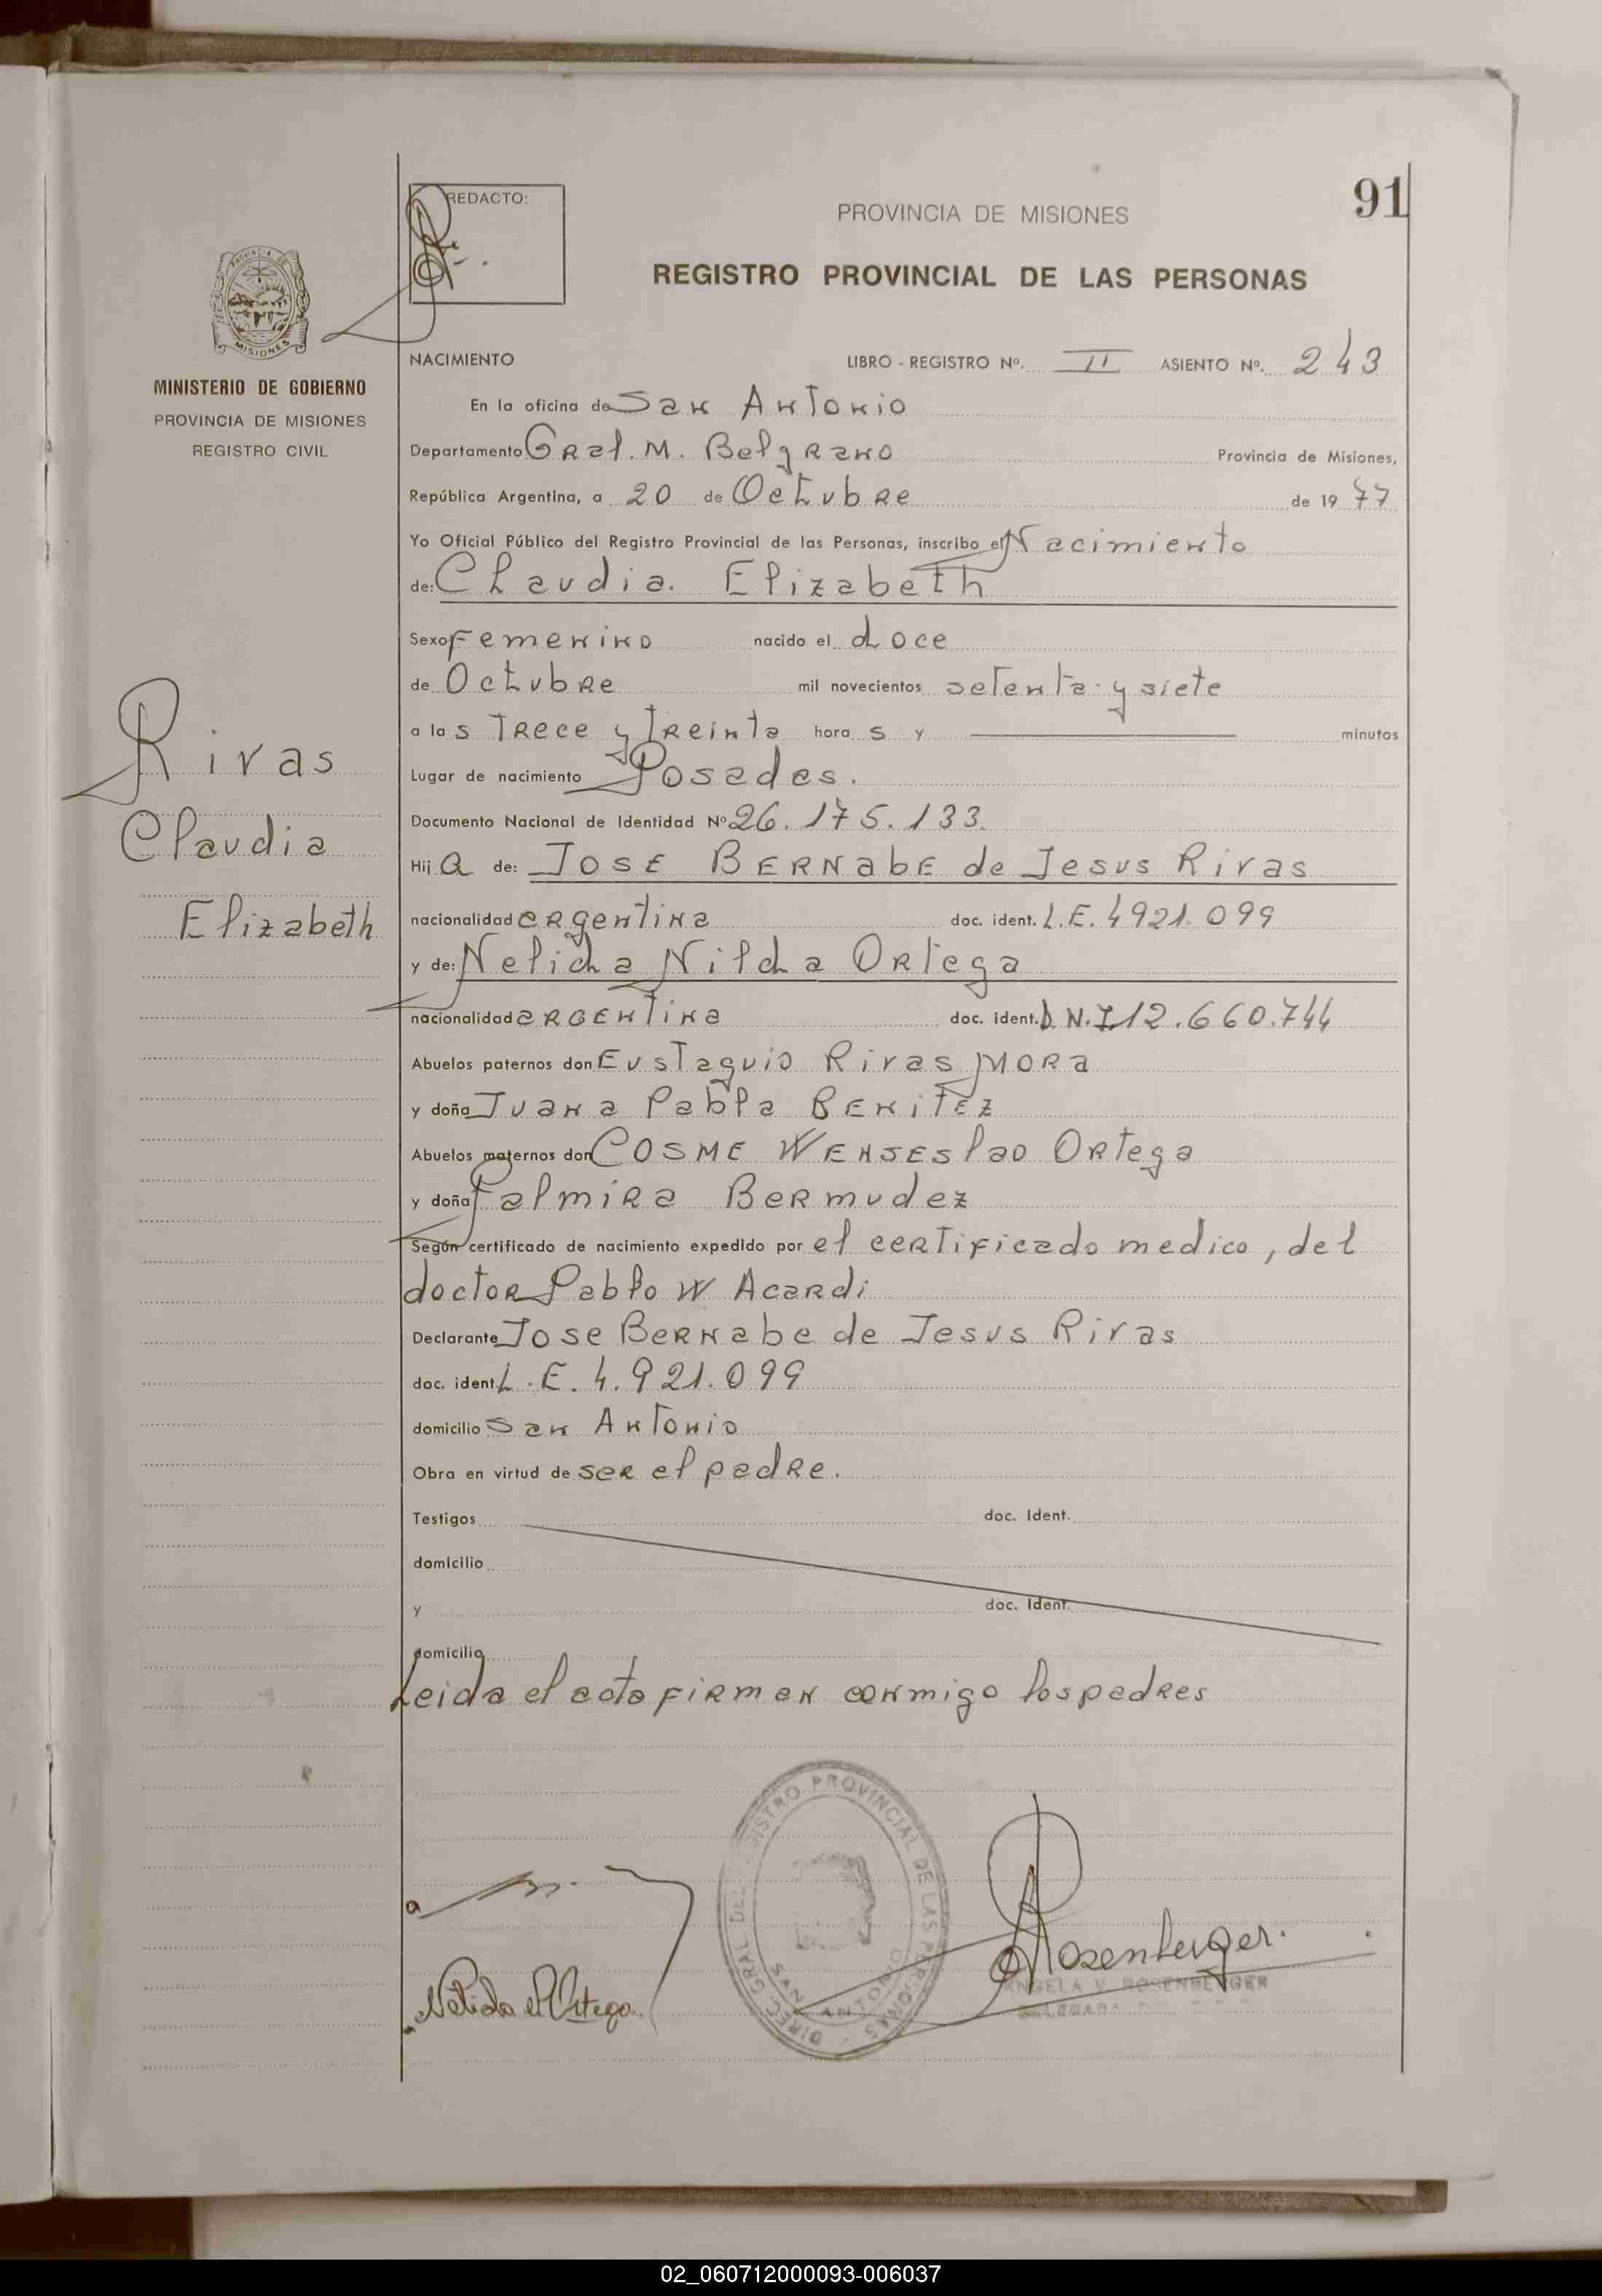 91
REDACTO:
PROVINCIA DE MISIONES
REGISTRO PROVINCIAL DE LAS PERSONAS
PROVINCIA DE
MISIONES
MINISTERIO DE GOBIERNO
PROVINCIA DE MISIONES
REGISTRO CIVIL
NACIMIENTO LIBRO - REGISTRO Nº. II ASIENTO Nº. 243
En la oficina de San Antonio
Departamento Gral. M. Belgrano Provincia de Misiones,
República Argentina, a 20 de Octubre de 1977
Yo Oficial Público del Registro Provincial de las Personas, inscribo el Nacimiento
de: Claudia. Elizabeth
Sexo Femenino nacido el doce
de Octubre mil novecientos setenta y siete
a las Trece y Treinta horas y minutos
Lugar de nacimiento Posadas.
Documento Nacional de Identidad Nº 26.175.133.
Hija de: JOSE BERNabE de Jesus Rivas
nacionalidad argentina doc. ident. L.E. 4921.099
y de: Nelida Nilda Ortega
nacionalidad ARGENTina doc. ident. D.N.I 12.660.744
Abuelos paternos don Eustaquio Rivas MORA
y doña Juana Pabla BENiTEZ
Abuelos maternos don COSME WENSESlao Ortega
y doña Palmira Bermudez
Según certificado de nacimiento expedido por el certificado medico, del
doctor Pablo W Acardi
Declarante Jose Bernabe de Jesus Rivas
doc. ident. L.E. 4.921.099
domicilio San Antonio
Obra en virtud de ser el padre.
Testigos doc. Ident.
domicilio
y doc. Ident.
domicilio
Leida el acta firman conmigo los padres
Rivas
Claudia
Elizabeth
DIREC. GRAL DEL REGISTRO PROVINCIAL DE LAS PERSONAS
SAN ANTONIO
Rosenberger.
ANGELA V. ROSENBERGER
DELEGADA
Nelida Ortega
02_060712000093-006037